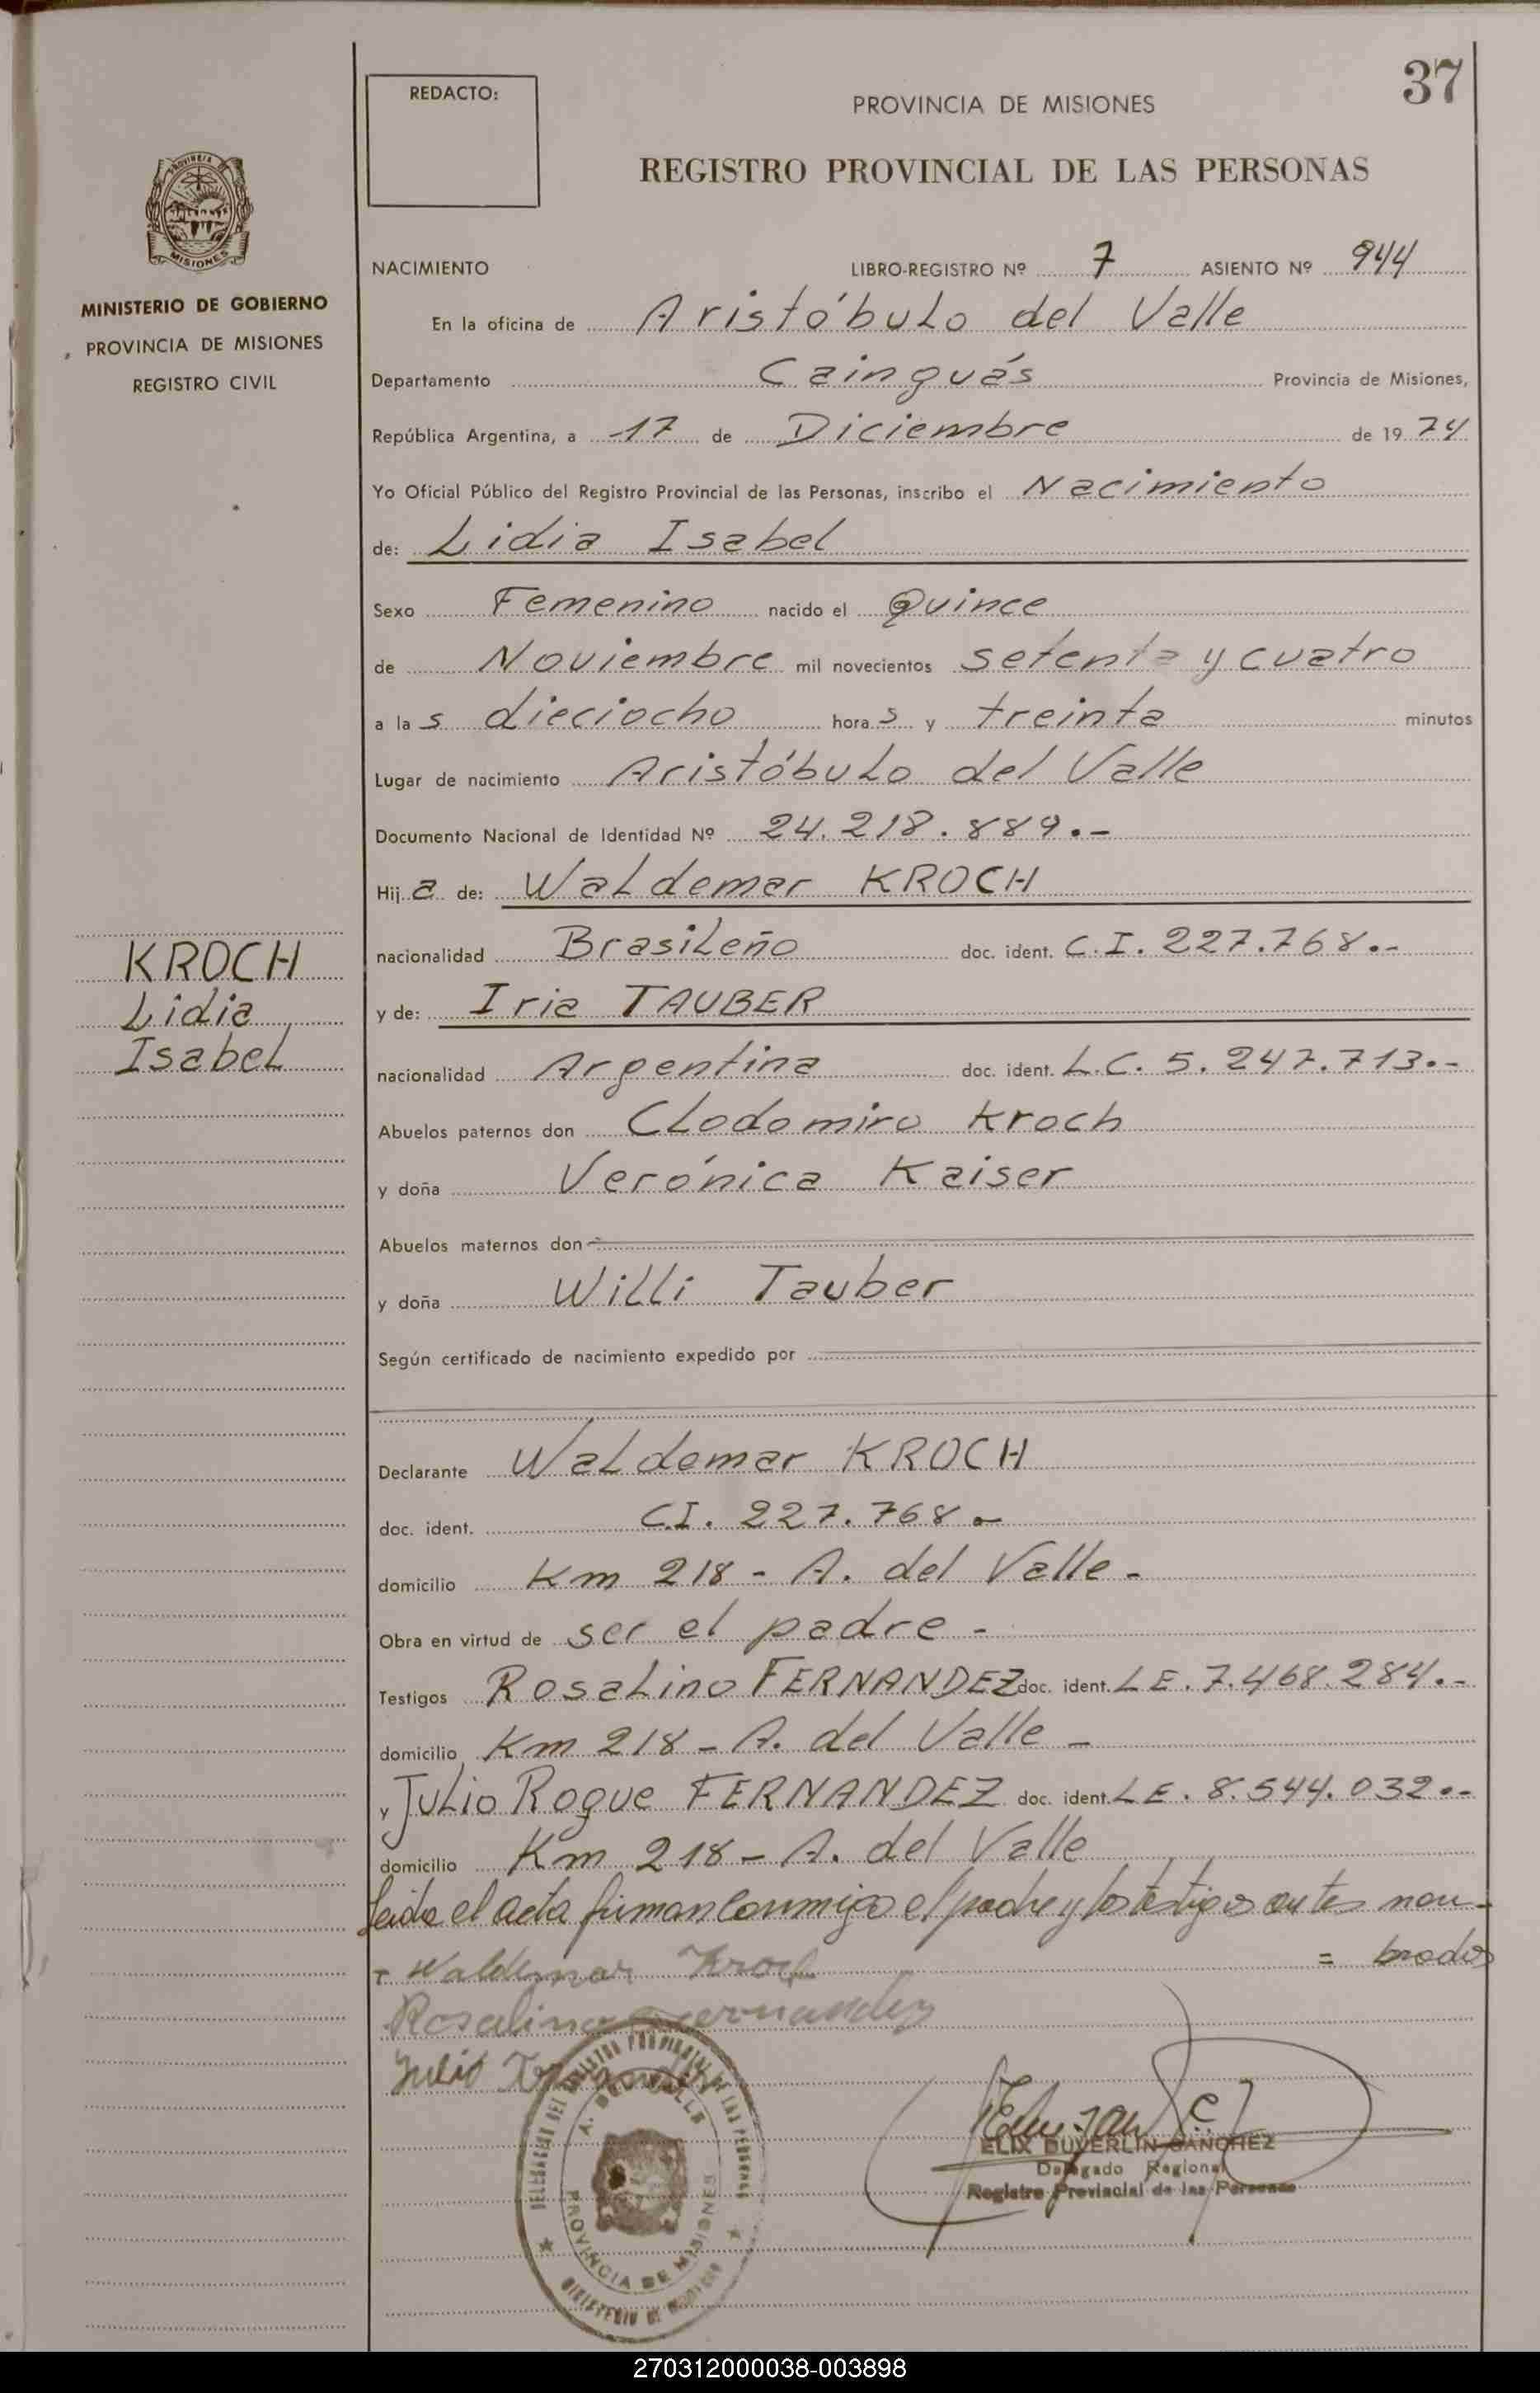 37
REDACTO:
PROVINCIA DE MISIONES
REGISTRO PROVINCIAL DE LAS PERSONAS
MISIONES
MINISTERIO DE GOBIERNO
PROVINCIA DE MISIONES
REGISTRO CIVIL
NACIMIENTO LIBRO-REGISTRO Nº 7 ASIENTO Nº 944
En la oficina de Aristóbulo del Valle
Departamento Cainguás Provincia de Misiones,
República Argentina, a 17 de Diciembre de 19 74
Yo Oficial Público del Registro Provincial de las Personas, inscribo el Nacimiento
de: Lidia Isabel
Sexo Femenino nacido el Quince
de Noviembre mil novecientos setenta y cuatro
a las dieciocho horas y treinta minutos
Lugar de nacimiento Aristóbulo del Valle
Documento Nacional de Identidad Nº 24.218.889.-
Hija de: Waldemar KROCH
nacionalidad Brasileño doc. ident. C.I. 227.768.-
y de: Iria TAUBER
nacionalidad Argentina doc. ident. L.C. 5.247.713.-
KROCH
Lidia
Isabel
Abuelos paternos don Clodomiro Kroch
y doña Verónica Kaiser
Abuelos maternos don
y doña Willi Tauber
Según certificado de nacimiento expedido por
Declarante Waldemar KROCH
doc. ident. C.I. 227.768.-
domicilio Km 218 - A. del Valle -
Obra en virtud de ser el padre -
Testigos Rosalino FERNANDEZ doc. ident. L E. 7.468.284.-
domicilio Km 218 - A. del Valle -
y Julio Roque FERNANDEZ doc. ident. L E. 8.544.032.-
domicilio Km 218 - A. del Valle
Leida el acta firman conmigo el padre y los testigos antes nom-
= brados
Waldemar Kroch
Rosalino Fernandez
Julio Fernandez
DELEGACION DEL REGISTRO PROVINCIAL DE LAS PERSONAS
A. DEL VALLE
PROVINCIA DE MISIONES
MINISTERIO DE GOBIERNO
ELIX DUVERLIN SANCHEZ
Delegado Regional
Registro Provincial de las Personas
270312000038-003898